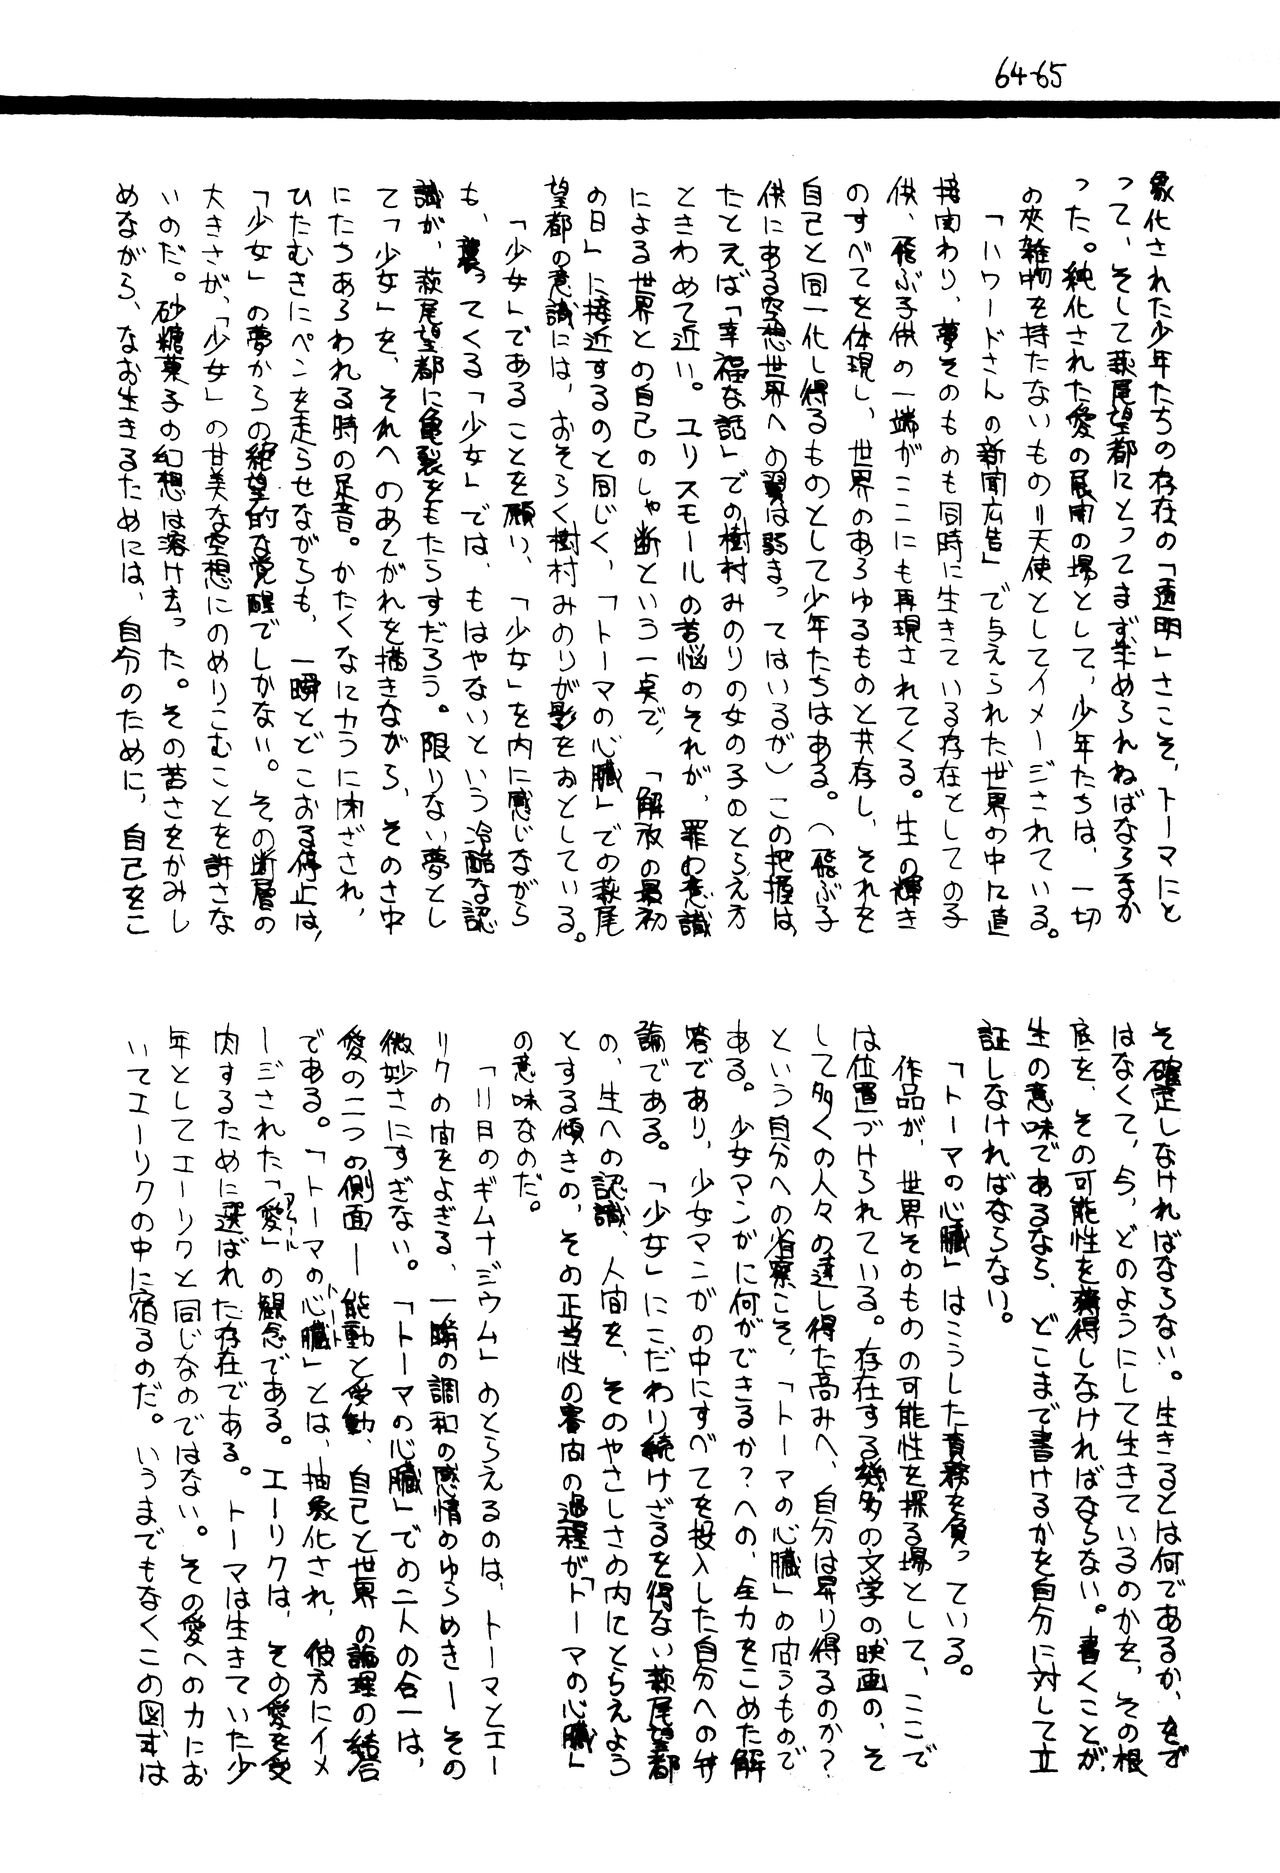 64-65
象化された少年たちの存在の「透明」さこそ、トーマにと
って、そして萩尾望都にとってまず求められねばならなか
った。純化された愛の展開の場として、少年たちは、一切
の夾雑物を持たないもの=天使としてイメージされている。
「ハワードさんの新聞広告」で与えられた世界の中に直
接関わり、夢そのものも同時に生きている存在としての子
供、飛ぶ子供の一端がここにも再現されてくる。生の輝き
のすべてを体現し、世界のあらゆるものと共存し、それを
自己と同一化し得るものとして少年たちはある。(飛ぶ子
供にある空想世界への翼は弱まってはいるが)この把握は、
たとえば「幸福な話」での樹村みのりの女の子のとらえ方
ときわめて近い。ユリスモールの苦悩のそれが、罪の意識
による世界との自己のしゃ断という一点で、「解放の最初
の日」に接近するのと同じく、「トーマの心臓」での萩尾
望都の意識には、おそらく樹村みのりが影をおとしている。
「少女」であることを願い、「少女」を内に感じながら
も、襲ってくる「少女」では、もはやないという冷酷な認
識が、萩尾望都に亀裂をもたらすだろう。限りない夢とし
て「少女」を、それへのあこがれを描きながら、そのさ中
にたちあらわれる時の足音。かたくなにカラに閉ざされ、
ひたむきにペンを走らせながらも、一瞬とどこおる停止は、
「少女」の夢からの絶望的な覚醒でしかない。その断層の
大きさが、「少女」の甘美な空想にのめりこむことを許さな
いのだ。砂糖菓子の幻想は溶け去った。その苦さをかみし
めながら、なお生きるためには、自分のために、自己をこ
そ確定しなければならない。生きるとは何であるか、をで
はなくて、今、どのようにして生きているのかを、その根
底を、その可能性を獲得しなければならない。書くことが、
生の意味であるなら、どこまで書けるかを自分に対して立
証しなければならない。
「トーマの心臓」はこうした責務を負っている。
作品が、世界そのものの可能性を探る場として、ここで
は位置づけられている。存在する幾多の文学の映画の、そ
して多くの人々の達し得た高みへ、自分は昇り得るのか?
という自分への省察こそ、「トーマの心臓」の問うもので
ある。少女マンガに何ができるか?への、全力をこめた解
答であり、少女マンガの中にすべてを投入した自分への弁
論である。「少女」にこだわり続けざるを得ない萩尾望都
の、生への認識、人間を、そのやさしさの内にとらえよう
とする傾きの、その正当性の審問の過程が「トーマの心臓」
の意味なのだ。
「11日のギムナジウム」のとらえるのは、トーマとエー
リクの間をよぎる、一瞬の調和の感情のゆらめきーその
微妙さにすぎない。「トーマの心臓」での二人の合一は、
愛の二つの側面ー能動と受動、自己と世界の論理の結合
である。「トーマの心臓」とは、抽象化され、彼方にイメ
ージされた「愛」の観念である。エーリクは、その愛を受
肉するために選ばれた存在である。トーマは生きていた少
年としてエーリクと同じなのではない。その愛への力にお
いてエーリクの中に宿るのだ。いうまでもなくこの図式は